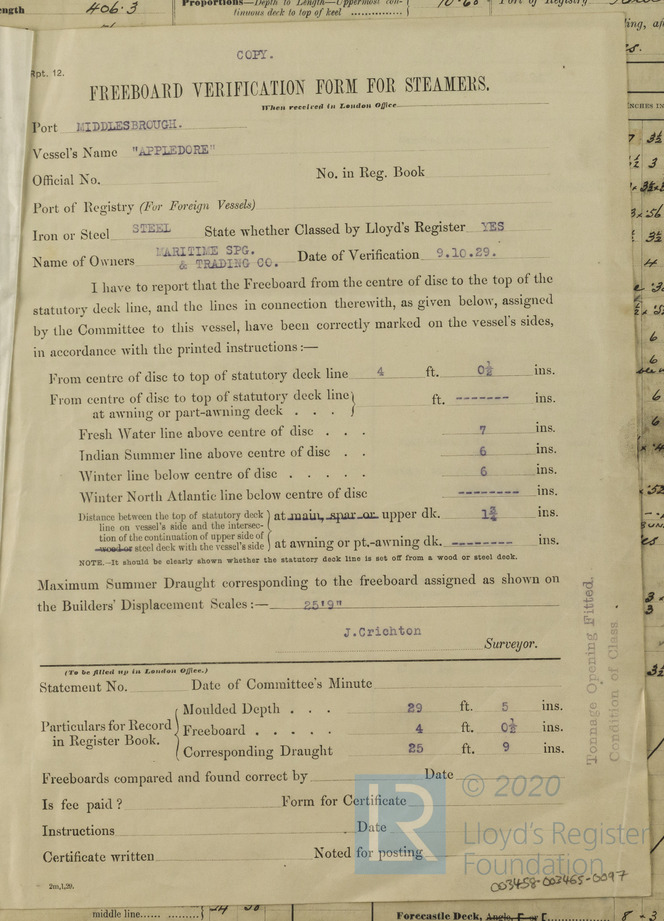 ength 406.3 Proportions—Depth to Length—Uppermost con-
tinuous deck to top of keel Port of Registry
COPY.
Rpt. 12.
FREEBOARD VERIFICATION FORM FOR STEAMERS.
When received in London Office
Port MIDDLESBROUGH.
Vessel's Name "APPLEDORE"
Official No. No. in Reg. Book
Port of Registry (For Foreign Vessels)
Iron or Steel STEEL State whether Classed by Lloyd's Register YES
Name of Owners MARITIME SPG. & TRADING CO. Date of Verification 9.10.29.
I have to report that the Freeboard from the centre of disc to the top of the
statutory deck line, and the lines in connection therewith, as given below, assigned
by the Committee to this vessel, have been correctly marked on the vessel's sides,
in accordance with the printed instructions:—
From centre of disc to top of statutory deck line 4 ft. 0½ ins.
From centre of disc to top of statutory deck line
at awning or part-awning deck . . . ft. ------- ins.
Fresh Water line above centre of disc . . . 7 ins.
Indian Summer line above centre of disc . . 6 ins.
Winter line below centre of disc . . . . . 6 ins.
Winter North Atlantic line below centre of disc -------- ins.
Distance between the top of statutory deck
line on vessel's side and the intersec-
tion of the continuation of upper side of
wood or steel deck with the vessel's side
at main, spar or upper dk. 1¾ ins.
at awning or pt.-awning dk. -------- ins.
NOTE.—It should be clearly shown whether the statutory deck line is set off from a wood or steel deck.
Maximum Summer Draught corresponding to the freeboard assigned as shown on
the Builders' Displacement Scales:— 25'9"
J.Crichton
Surveyor.
(To be filled up in London Office.)
Statement No. Date of Committee's Minute
Particulars for Record
in Register Book.
Moulded Depth . . . 29 ft. 5 ins.
Freeboard . . . . . 4 ft. 0½ ins.
Corresponding Draught 25 ft. 9 ins.
Freeboards compared and found correct by Date
Is fee paid? Form for Certificate
Instructions Date
Certificate written Noted for posting
2m,1,29.
Tonnage Opening Fitted.
Condition of Class
© 2020
LR
Lloyd's Register
Foundation
003458-003465-0097
middle line
Forecastle Deck,